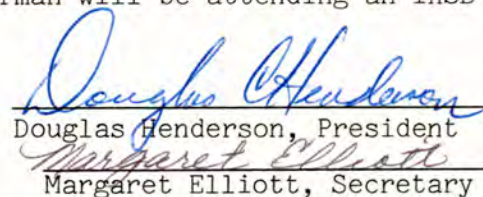 rman will be attending an
Douglas C Henderson
Douglas Henderson, President
Margaret Elliott
Margaret Elliott, Secretary